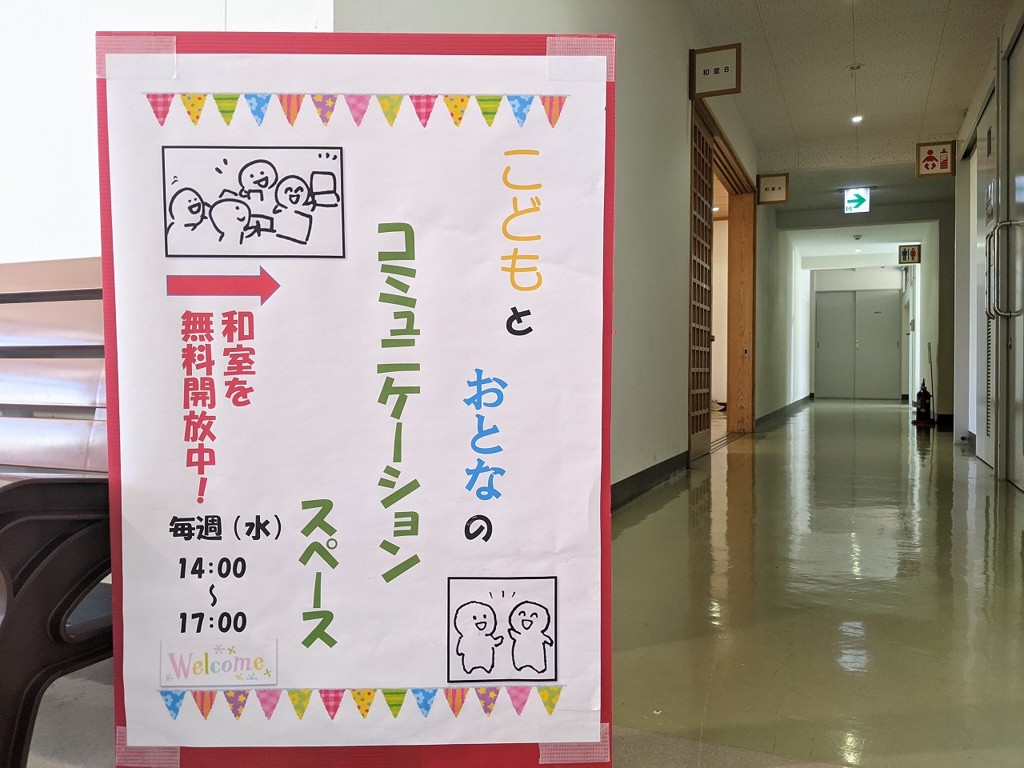 こどもと
おとなの
コミュニケーション
スペース
和室を
無料開放中！
毎週（水）
14:00
～
17:00
Welcome
和室B
和室A